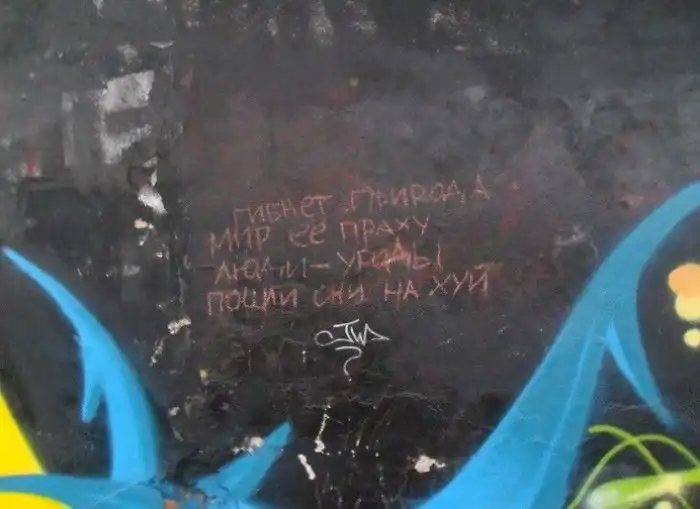 ГИБНЕТ ПРИРОДА
МИР ЕЕ ПРАХУ
ЛЮДИ – УРОДЫ
ПОШЛИ ОНИ НА ХУЙ